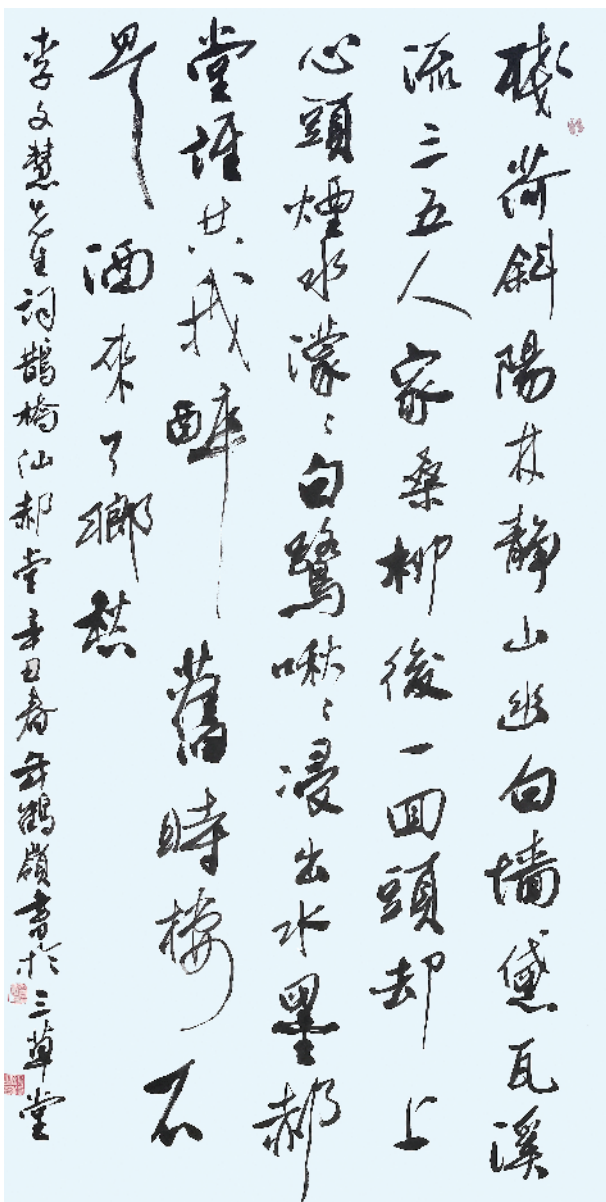 棧荷斜陽林静山幽白墻黛瓦溪
流三五人家桑柳後一回頭却上
心頭煙水濛〻白鷺啾〻浸出水墨郝
堂誰共我醉舊時樓不
是酒來了瑯
李文慧先生詞鵲橋仙郝堂辛丑春鶴嶺書於三草堂